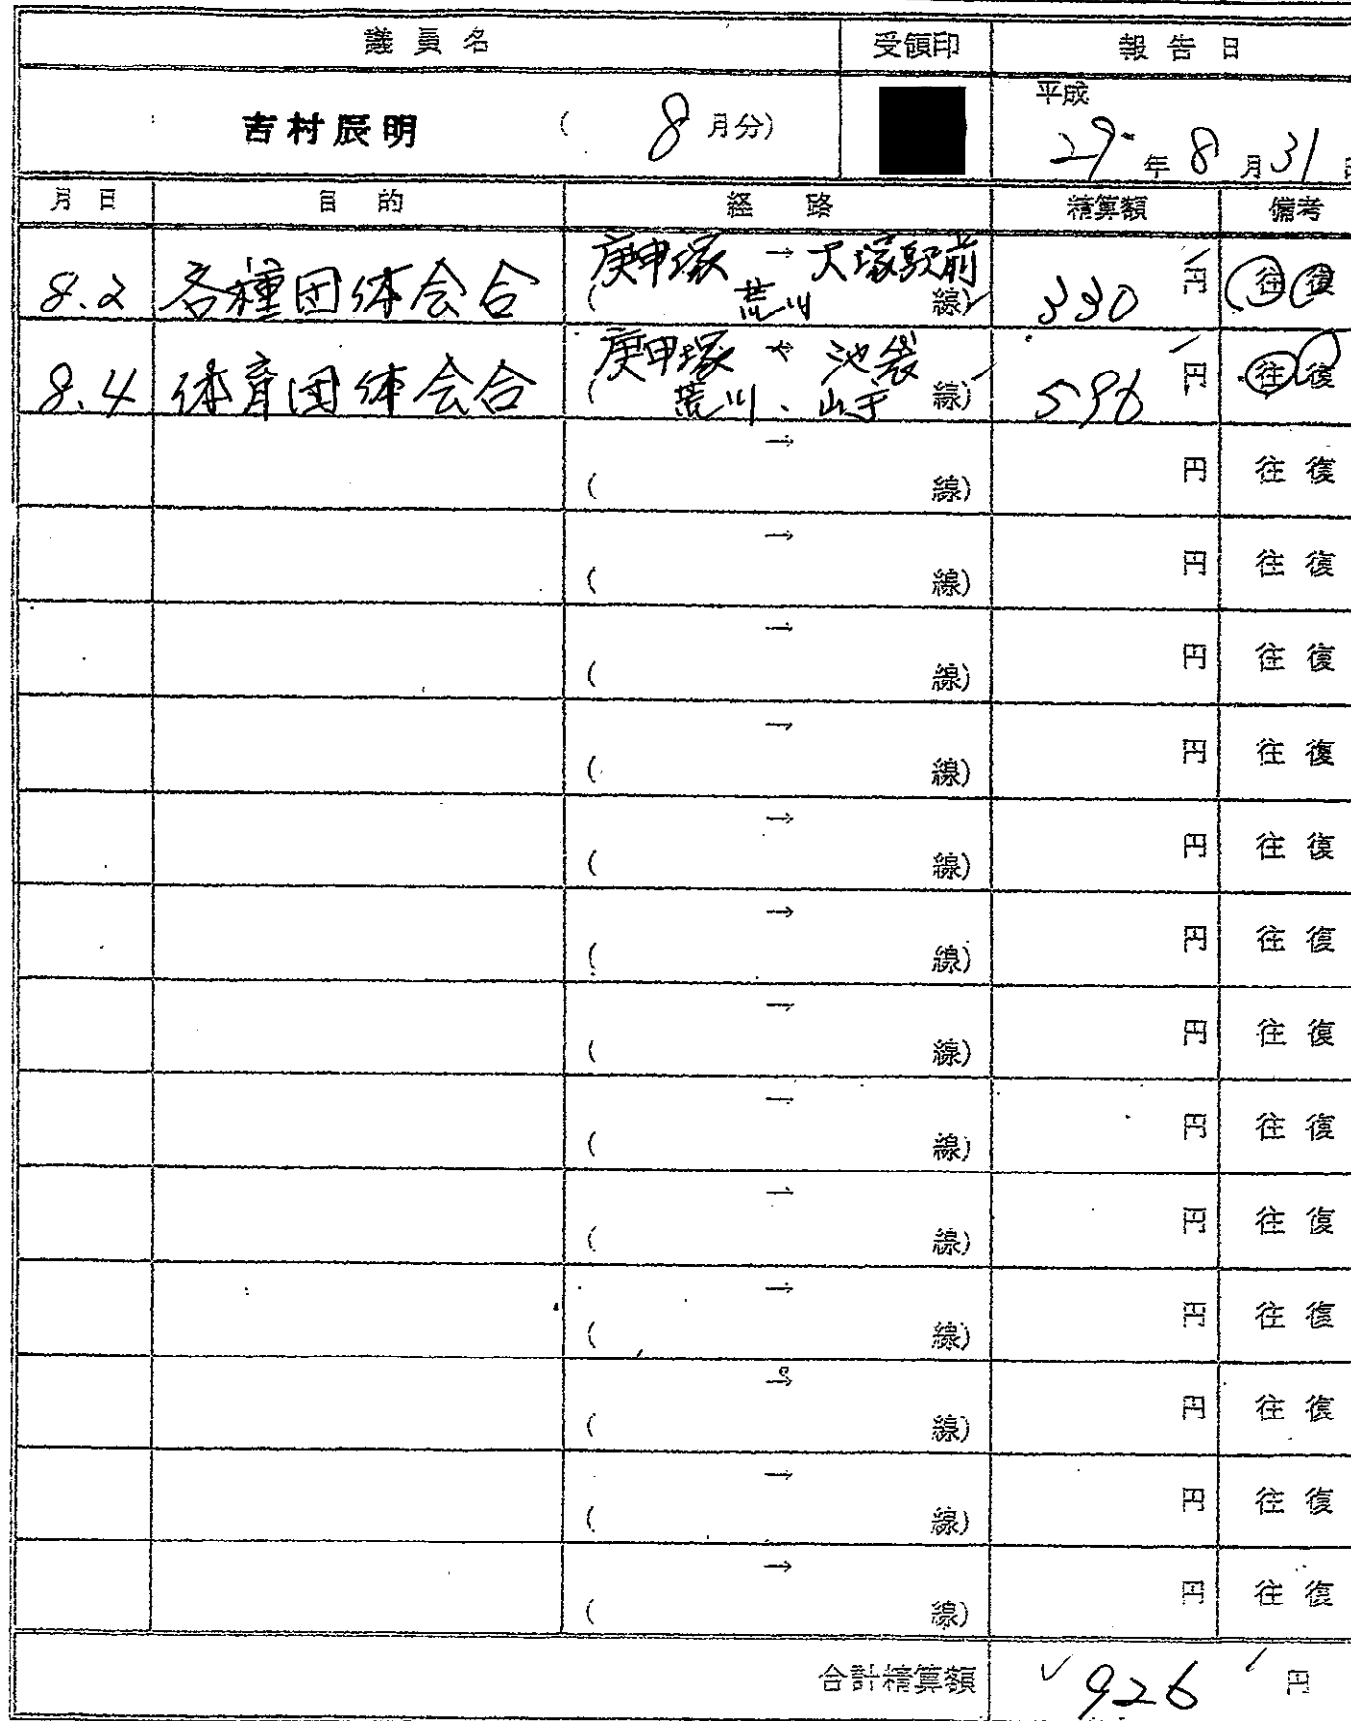 議員名 受領印 報告日
吉村辰明 ( 8 月分) 平成
29年 8月 31日
月日 目的 経路 精算額 備考
8.2 各種団体会合 庚申塚 → 大塚駅前 330 円 往 復
( 荒川 線)
8.4 体育団体会合 庚申塚 → 池袋 596 円 往 復
( 荒川、山手 線)
→ 円 往 復
( 線)
→ 円 往 復
( 線)
→ 円 往 復
( 線)
→ 円 往 復
( 線)
→ 円 往 復
( 線)
→ 円 往 復
( 線)
→ 円 往 復
( 線)
→ 円 往 復
( 線)
→ 円 往 復
( 線)
→ 円 往 復
( 線)
→ 円 往 復
( 線)
→ 円 往 復
( 線)
→ 円 往 復
( 線)
合計精算額 926 円